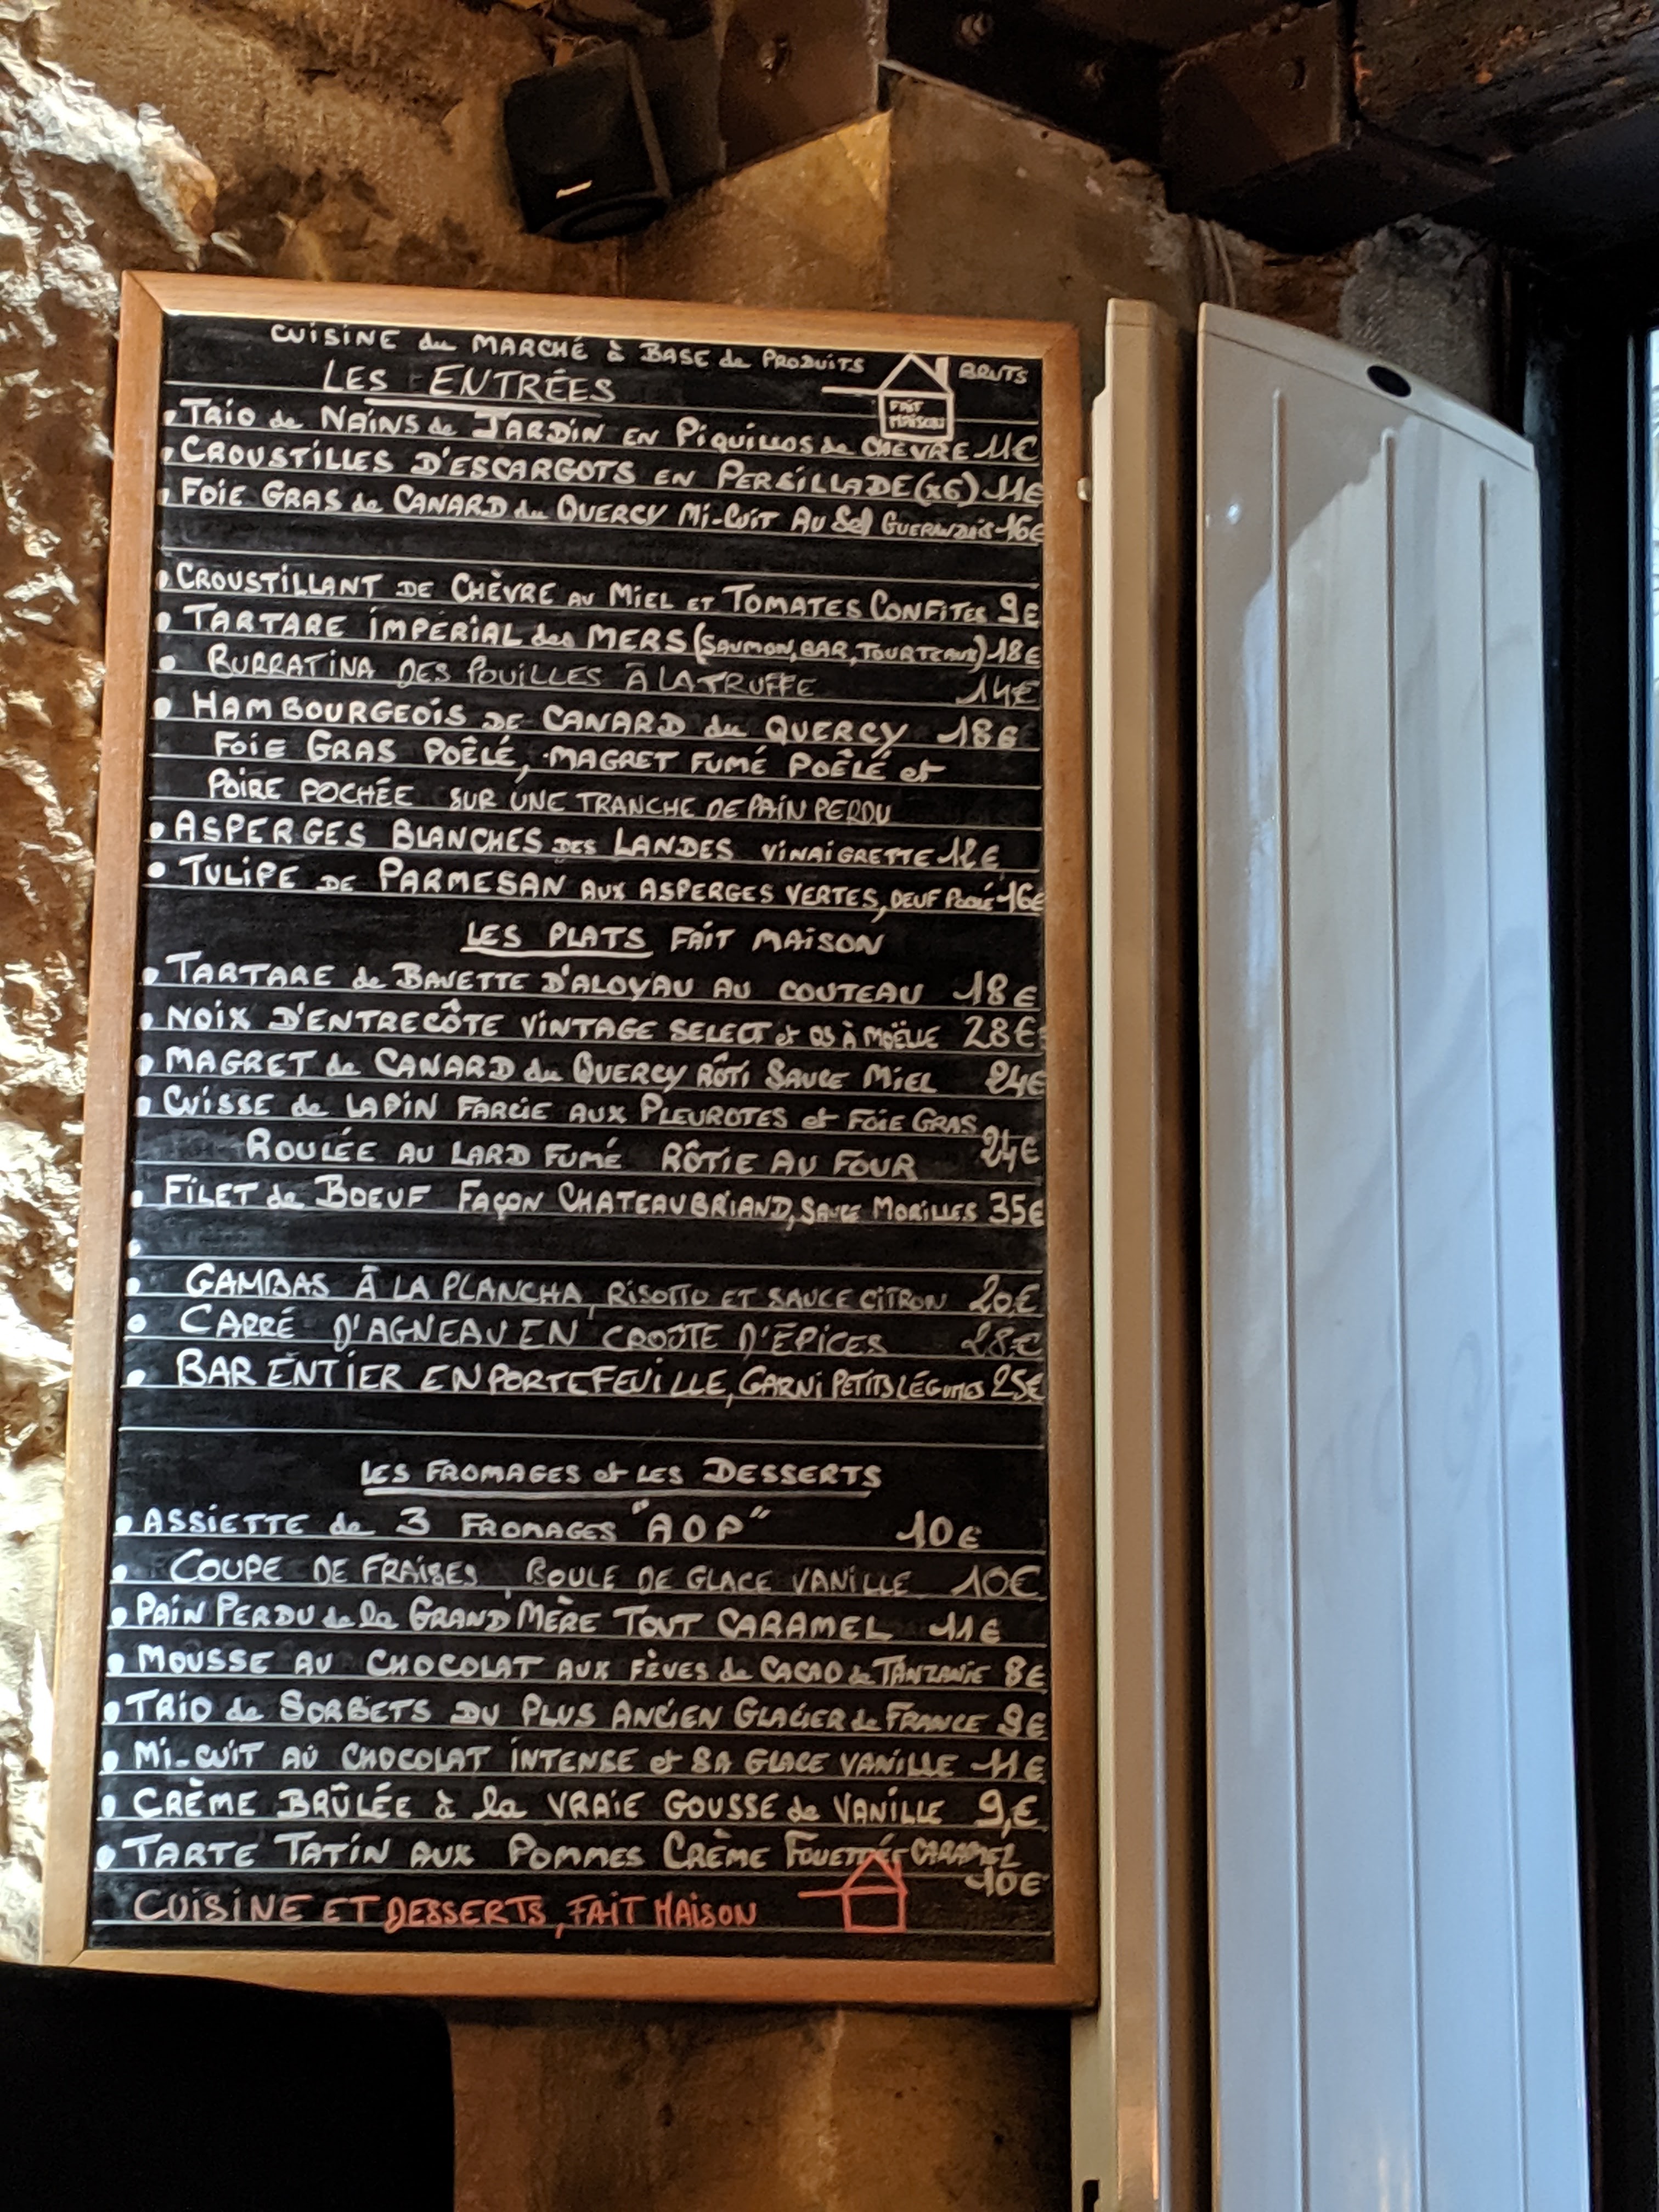 CUISINE du MARCHÉ à BASE de PRODUITS BRUTS
LES ENTRÉES
FAIT
MAISON
TRIO de NAINS de JARDIN EN PIQUILLOS de CHÈVRE 11€
CROUSTILLES D'ESCARGOTS EN PERSILLADE (x6) 11€
FOIE GRAS de CANARD du QUERCY Mi-CUIT AU Sel GUERANDAIS 16€
CROUSTILLANT DE CHÈVRE AU MIEL ET TOMATES CONFITES 9€
TARTARE IMPÉRIAL des MERS (SAUMON, BAR, TOURTEAUX) 18€
BURRATINA DES POUILLES À LA TRUFFE 14€
HAMBOURGEOIS DE CANARD du QUERCY 18€
FOIE GRAS POÊLÉ, MAGRET FUMÉ POÊLÉ et
POIRE POCHÉE SUR UNE TRANCHE DE PAIN PERDU
ASPERGES BLANCHES DES LANDES VINAIGRETTE 12€
TULIPE DE PARMESAN AUX ASPERGES VERTES, OEUF POCHÉ 16€
LES PLATS FAIT MAISON
TARTARE de BAVETTE D'ALOYAU AU COUTEAU 18€
NOIX D'ENTRECÔTE VINTAGE SELECT et OS À MOËLLE 28€
MAGRET de CANARD du QUERCY RÔTI SAUCE MIEL 24€
CUISSE de LAPIN FARCIE AUX PLEUROTES et FOIE GRAS
ROULÉE AU LARD FUMÉ RÔTIE AU FOUR 24€
FILET de BOEUF FAÇON CHATEAUBRIAND, SAUCE MORILLES 35€
GAMBAS À LA PLANCHA, RISOTTO ET SAUCE CITRON 20€
CARRÉ D'AGNEAU EN CROÛTE D'ÉPICES 28€
BAR ENTIER EN PORTEFEUILLE, GARNI PETITS LÉGUMES 25€
LES FROMAGES et LES DESSERTS
ASSIETTE de 3 FROMAGES "AOP" 10€
COUPE DE FRAISES, BOULE DE GLACE VANILLE 10€
PAIN PERDU de la GRAND'MÈRE TOUT CARAMEL 11€
MOUSSE AU CHOCOLAT AUX FÈVES de CACAO de TANZANIE 8€
TRIO de SORBETS DU PLUS ANCIEN GLACIER de FRANCE 9€
Mi-CUIT AU CHOCOLAT INTENSE et SA GLACE VANILLE 11€
CRÈME BRÛLÉE à la VRAIE GOUSSE de VANILLE 9,€
TARTE TATIN AUX POMMES CRÈME FOUETTÉE CARAMEL
10€
CUISINE ET DESSERTS, FAIT MAISON